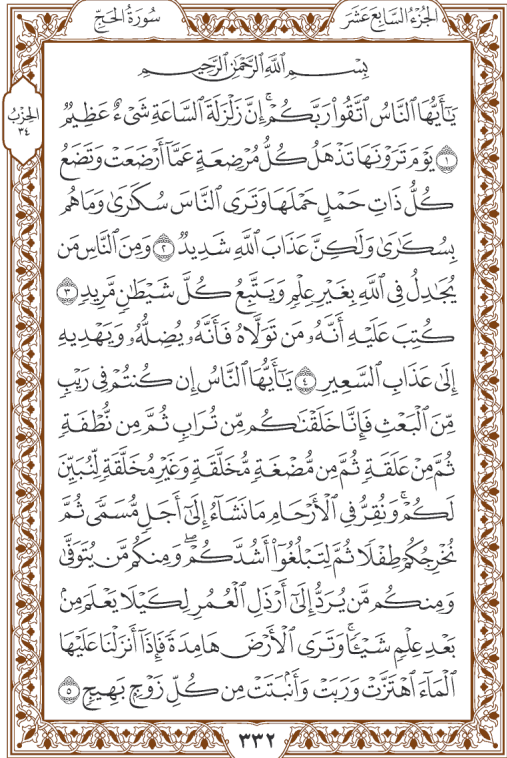 سُورَةُ الحَجِّ
الجُزْءُ السَّابِعَ عَشَرَ
الحِزْبُ
٣٤
بِسْمِ ٱللَّهِ ٱلرَّحْمَٰنِ ٱلرَّحِيمِ
يَٰٓأَيُّهَا ٱلنَّاسُ ٱتَّقُوا۟ رَبَّكُمْ ۚ إِنَّ زَلْزَلَةَ ٱلسَّاعَةِ شَىْءٌ عَظِيمٌ
١ يَوْمَ تَرَوْنَهَا تَذْهَلُ كُلُّ مُرْضِعَةٍ عَمَّآ أَرْضَعَتْ وَتَضَعُ
كُلُّ ذَاتِ حَمْلٍ حَمْلَهَا وَتَرَى ٱلنَّاسَ سُكَٰرَىٰ وَمَا هُم
بِسُكَٰرَىٰ وَلَٰكِنَّ عَذَابَ ٱللَّهِ شَدِيدٌ ٢ وَمِنَ ٱلنَّاسِ مَن
يُجَٰدِلُ فِى ٱللَّهِ بِغَيْرِ عِلْمٍ وَيَتَّبِعُ كُلَّ شَيْطَٰنٍ مَّرِيدٍ ٣
كُتِبَ عَلَيْهِ أَنَّهُۥ مَن تَوَلَّاهُ فَأَنَّهُۥ يُضِلُّهُۥ وَيَهْدِيهِ
إِلَىٰ عَذَابِ ٱلسَّعِيرِ ٤ يَٰٓأَيُّهَا ٱلنَّاسُ إِن كُنتُمْ فِى رَيْبٍ
مِّنَ ٱلْبَعْثِ فَإِنَّا خَلَقْنَٰكُم مِّن تُرَابٍ ثُمَّ مِن نُّطْفَةٍ
ثُمَّ مِنْ عَلَقَةٍ ثُمَّ مِن مُّضْغَةٍ مُّخَلَّقَةٍ وَغَيْرِ مُخَلَّقَةٍ لِّنُبَيِّنَ
لَكُمْ ۚ وَنُقِرُّ فِى ٱلْأَرْحَامِ مَا نَشَآءُ إِلَىٰٓ أَجَلٍ مُّسَمًّى ثُمَّ
نُخْرِجُكُمْ طِفْلًا ثُمَّ لِتَبْلُغُوٓا۟ أَشُدَّكُمْ ۖ وَمِنكُم مَّن يُتَوَفَّىٰ
وَمِنكُم مَّن يُرَدُّ إِلَىٰٓ أَرْذَلِ ٱلْعُمُرِ لِكَيْلَا يَعْلَمَ مِنۢ
بَعْدِ عِلْمٍ شَيْـًٔا ۚ وَتَرَى ٱلْأَرْضَ هَامِدَةً فَإِذَآ أَنزَلْنَا عَلَيْهَا
ٱلْمَآءَ ٱهْتَزَّتْ وَرَبَتْ وَأَنۢبَتَتْ مِن كُلِّ زَوْجٍۭ بَهِيجٍ ٥
٣٣٢